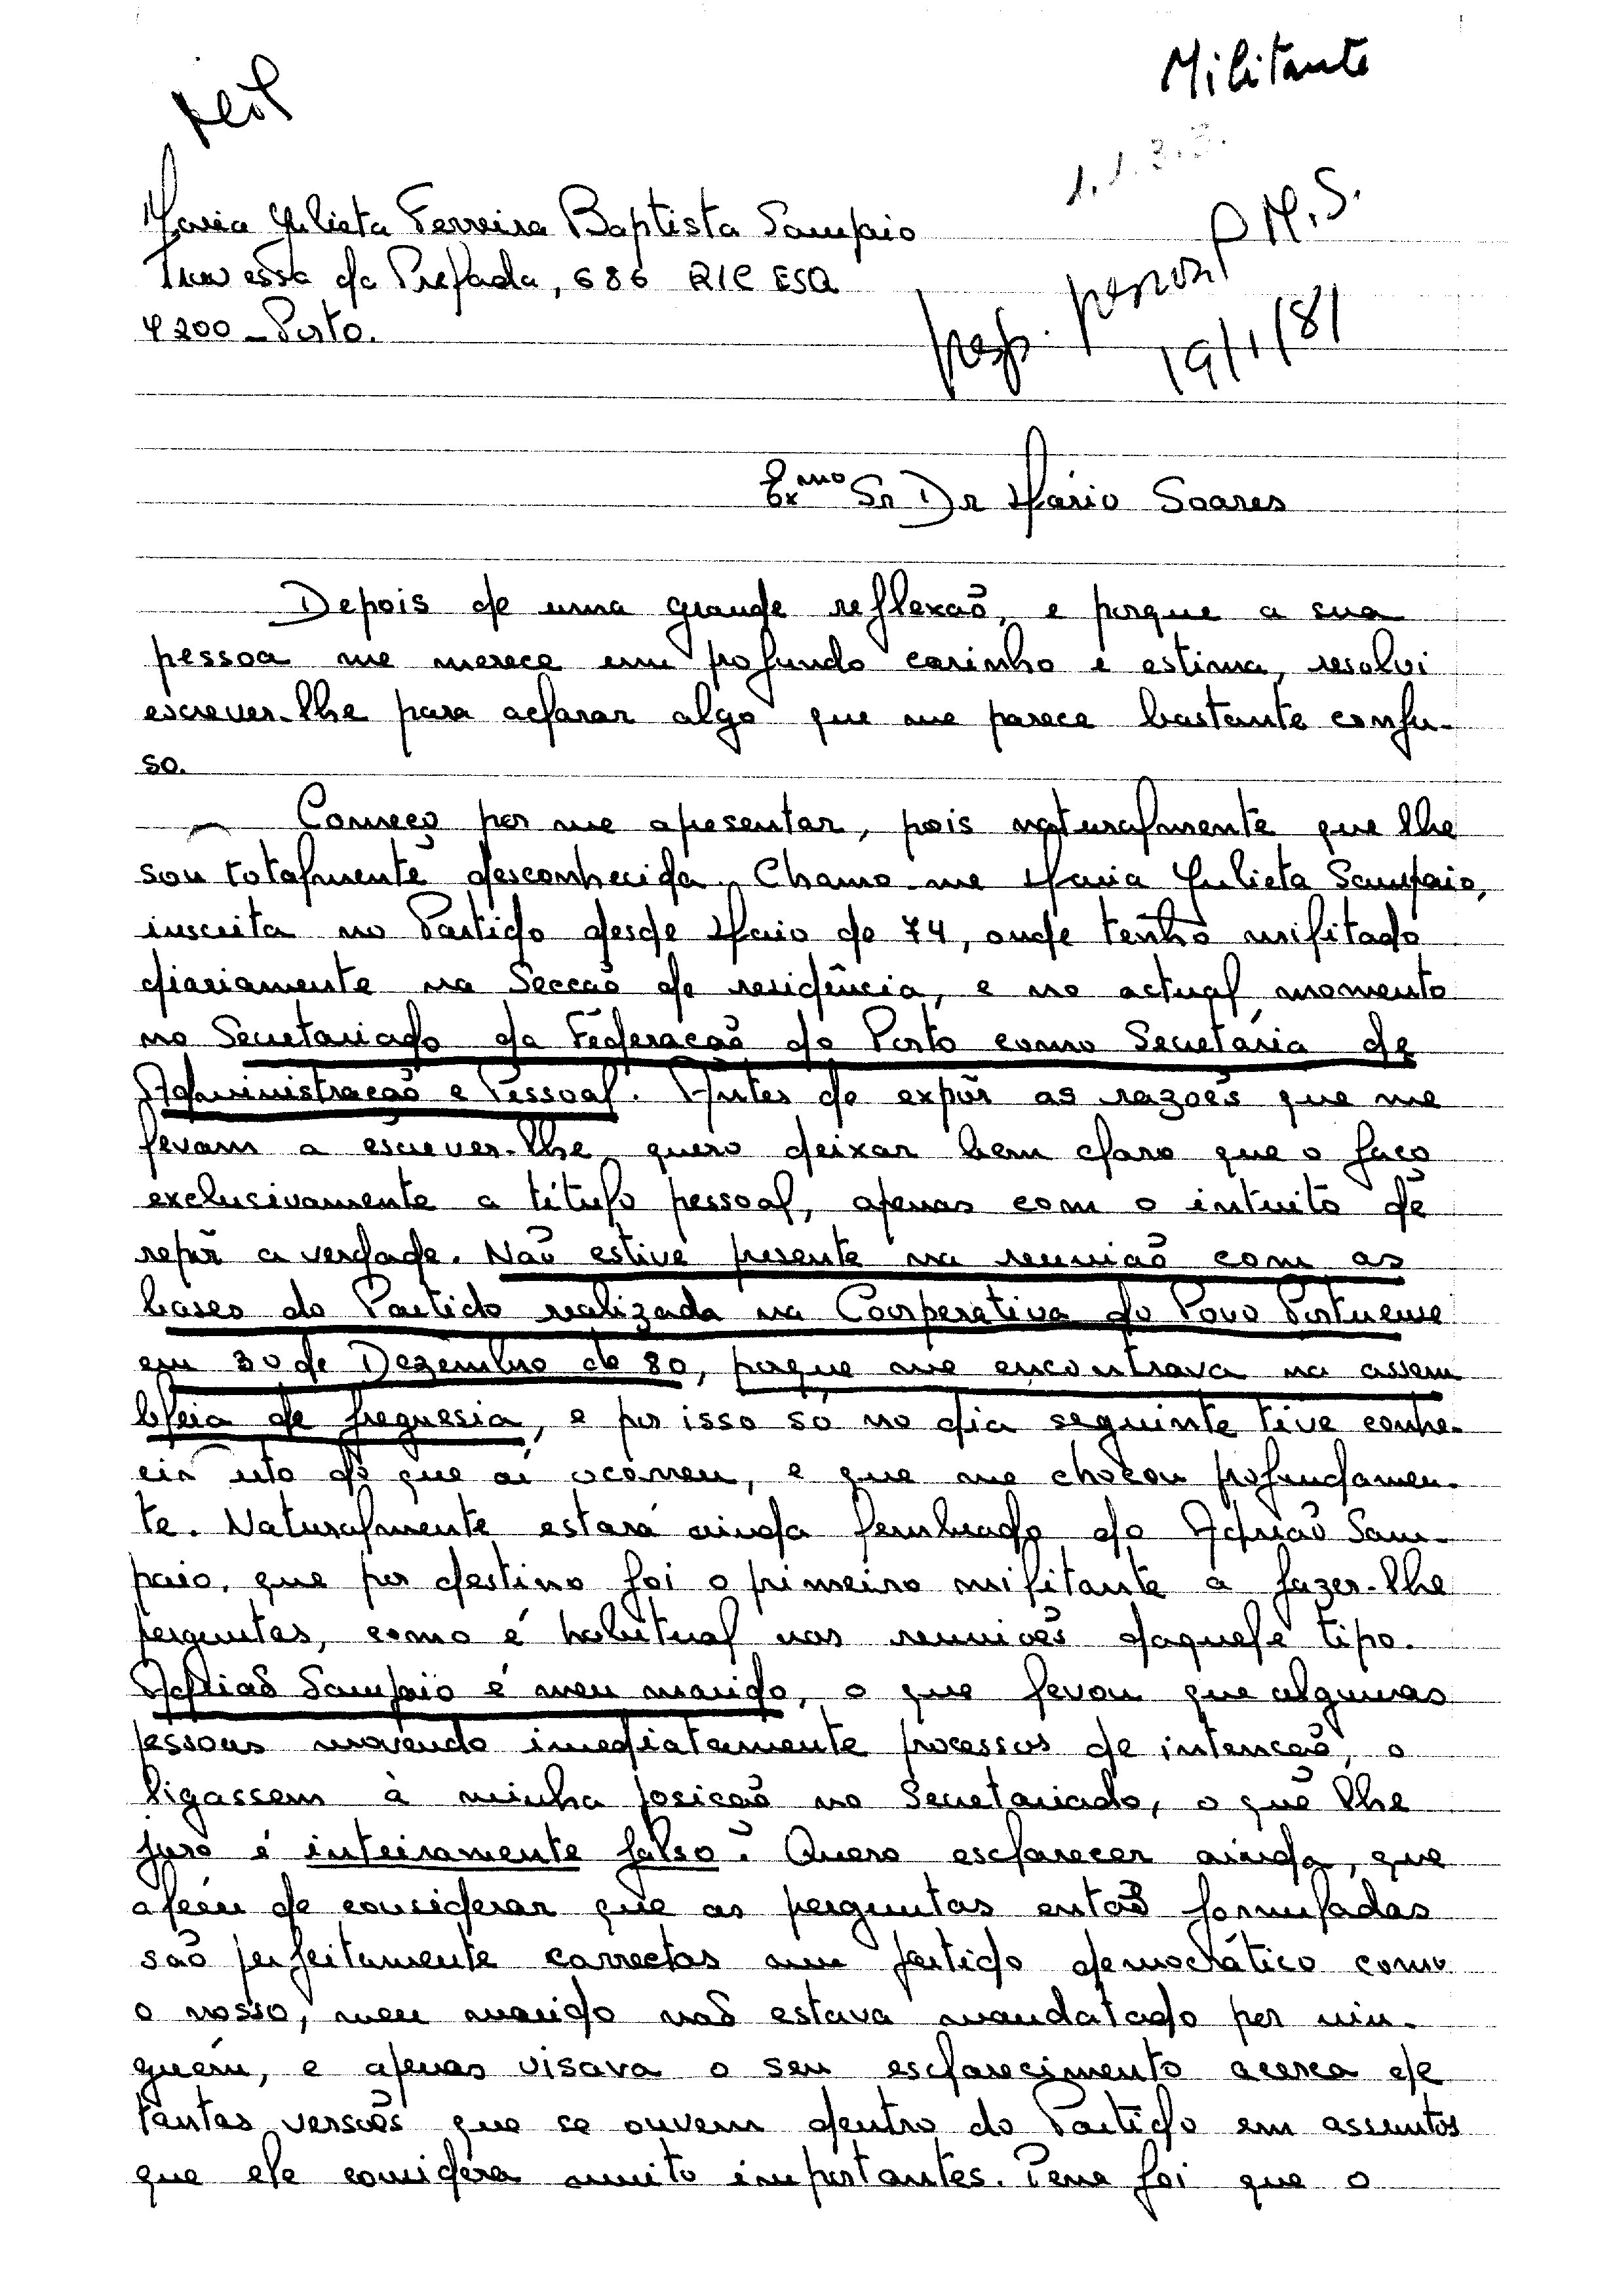 Militante
1.1.3.3.
Maria Julieta Ferreira Baptista Sampaio
Travessa da Prelada, 686 R/C ESQ
P M.S.
4200 - Porto.
resp. pessoal
19/1/81
Exmo Sr Dr Mário Soares
Depois de uma grande reflexão, e porque a sua
pessoa me merece um profundo carinho e estima, resolvi
escrever-lhe para aclarar algo que me parece bastante confu-
so.
Começo por me apresentar, pois naturalmente que lhe
sou totalmente desconhecida. Chamo-me Maria Julieta Sampaio,
inscrita no Partido desde Maio de 74, onde tenho militado
diariamente na Secção de residência, e no actual momento
no Secretariado da Federação do Porto como Secretária de
Administração e Pessoal. Antes de expôr as razões que me
levam a escrever-lhe, quero deixar bem claro que o faço
exclusivamente a título pessoal, apenas com o intuito de
repôr a verdade. Não estive presente na reunião com as
bases do Partido realizada na Cooperativa do Povo Portuense
em 30 de Dezembro de 80, porque me encontrava na assem
bleia de freguesia, e por isso só no dia seguinte tive conhe-
cimento do que aí ocorreu, e que me chocou profundamen-
te. Naturalmente estará ainda lembrado do Adrião Sam-
paio, que por destino foi o primeiro militante a fazer-lhe
perguntas, como é habitual nas reuniões daquele tipo.
Adrião Sampaio é meu marido, o que levou que algumas
pessoas movendo imediatamente processos de intenção, o
ligassem à minha posição no Secretariado, o que lhe
juro é inteiramente falso. Quero esclarecer ainda, que
além de considerar que as perguntas então formuladas
são perfeitamente correctas num partido democrático como
o nosso, meu marido não estava mandatado por nin-
guém, e apenas visava o seu esclarecimento acerca de
tantas versões que se ouvem dentro do Partido em assuntos
que ele considera muito importantes. Pena foi que o